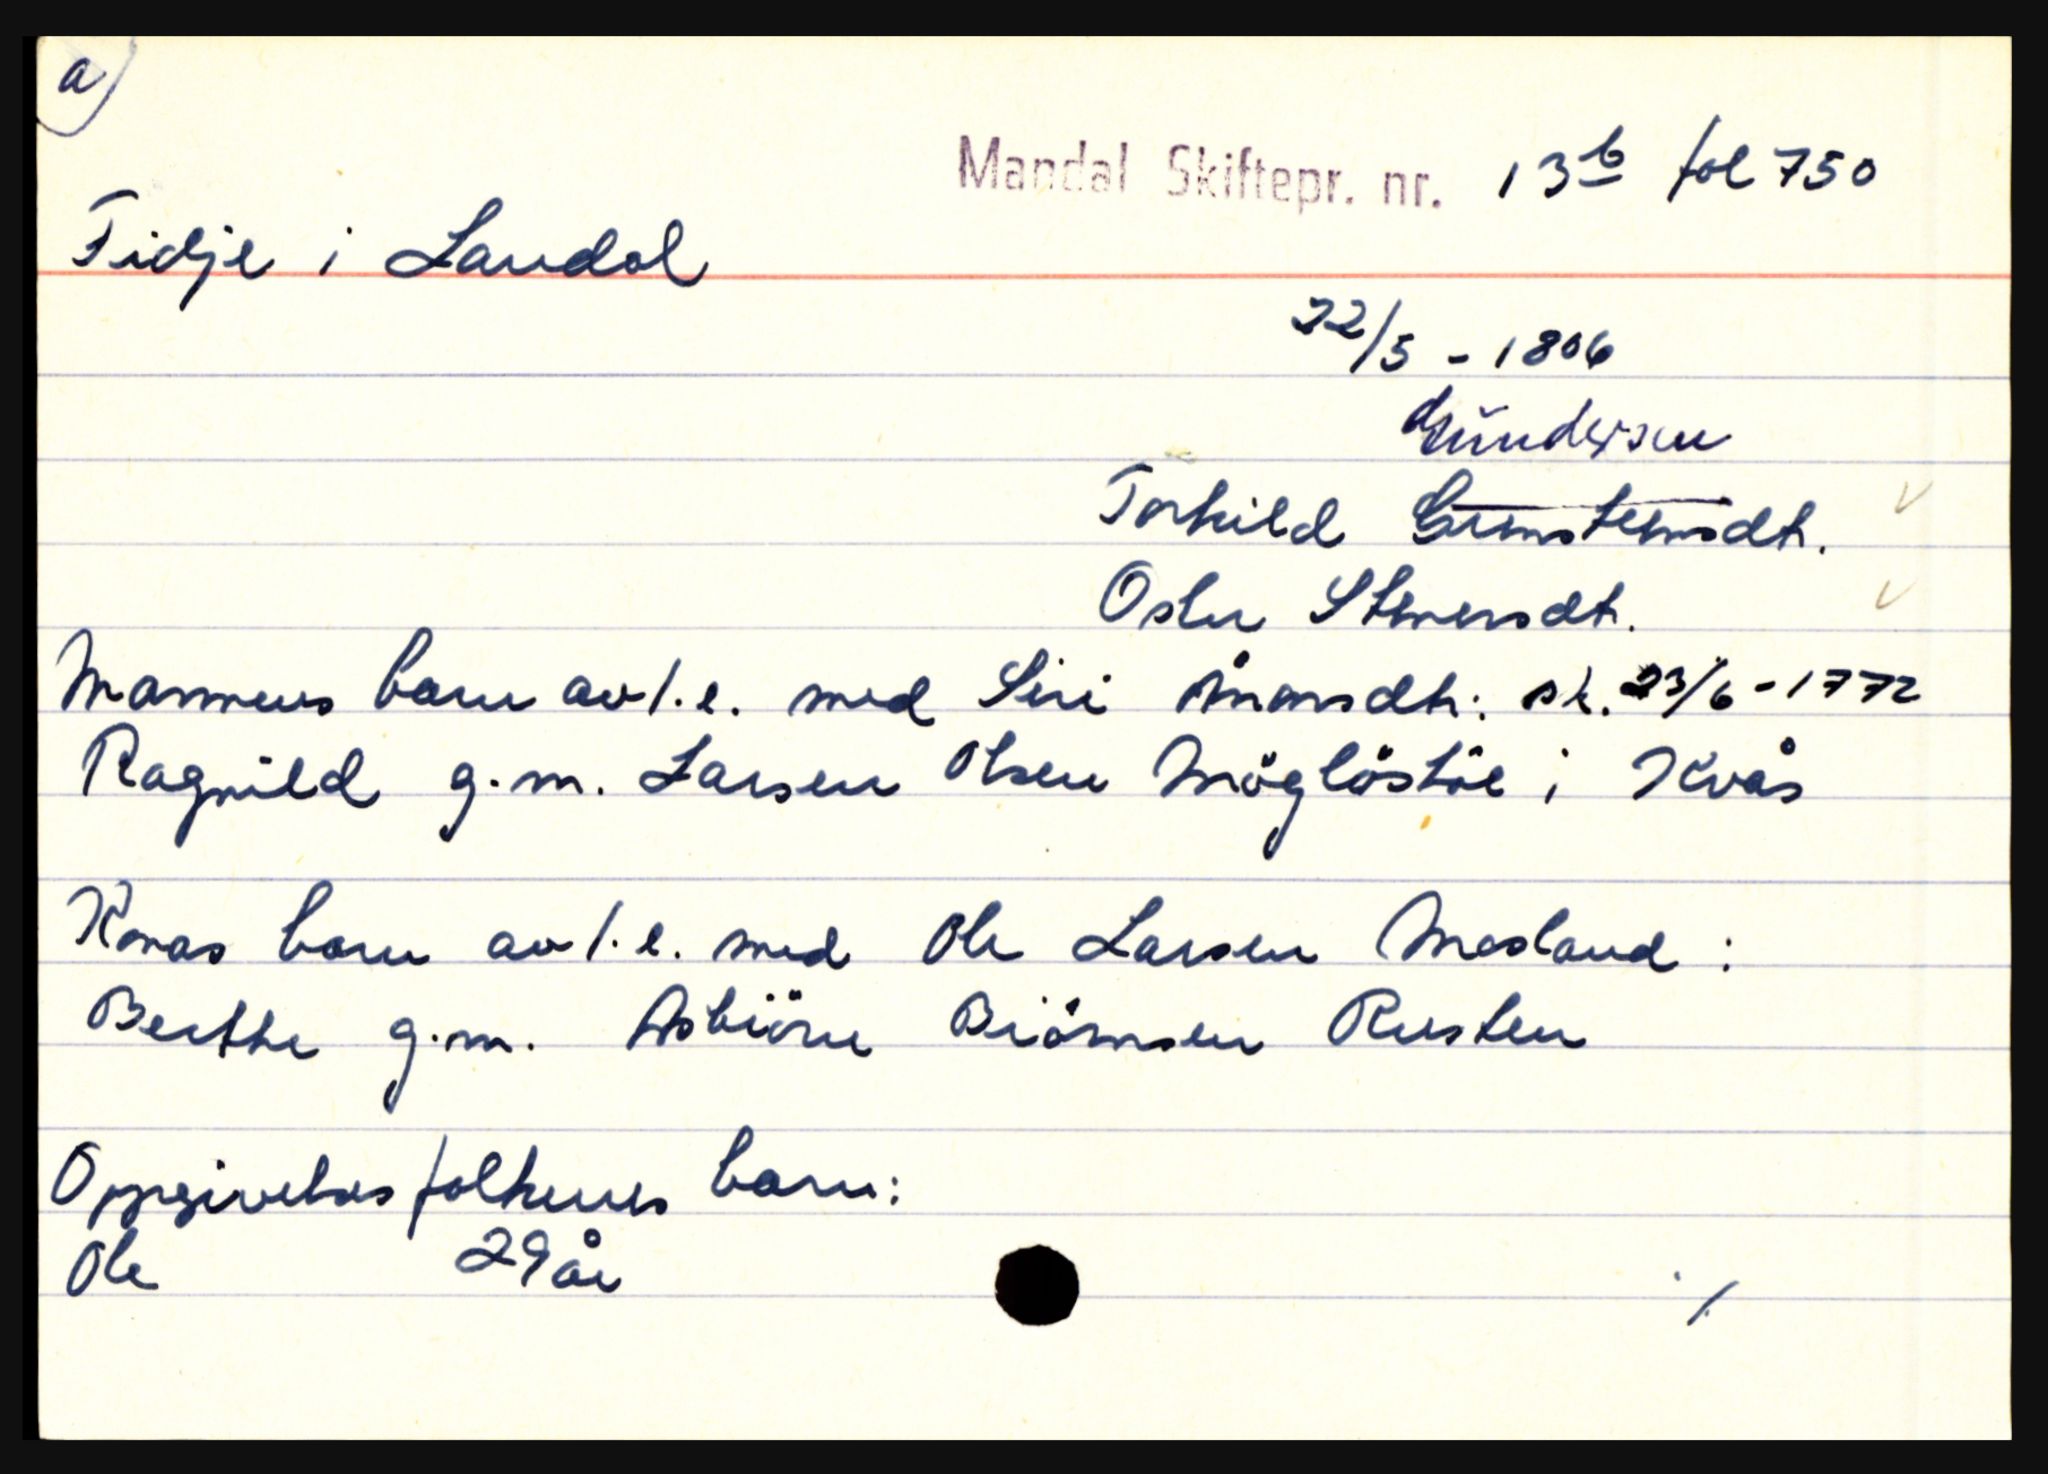 a)
Mandal Skiftepr. nr. 13b fol 750
Fidje i Laudal
22/5 - 1806
Gŭndersen
Torkild Gunstensdtr.
Osler Stenersdtr.
Mannens barn av 1.e. med Siri Ånonsdtr: sk. 23/6 - 1772
Ragnild g.m. Larsen Olsen Möglöstöe i Kvås
Konas barn av 1.e. med Ole Larsen Mesland :
Berthe g.m. Asbiörn Biörnsen Rusten
Oppgivelsesfolkenes barn:
Ole 29 år